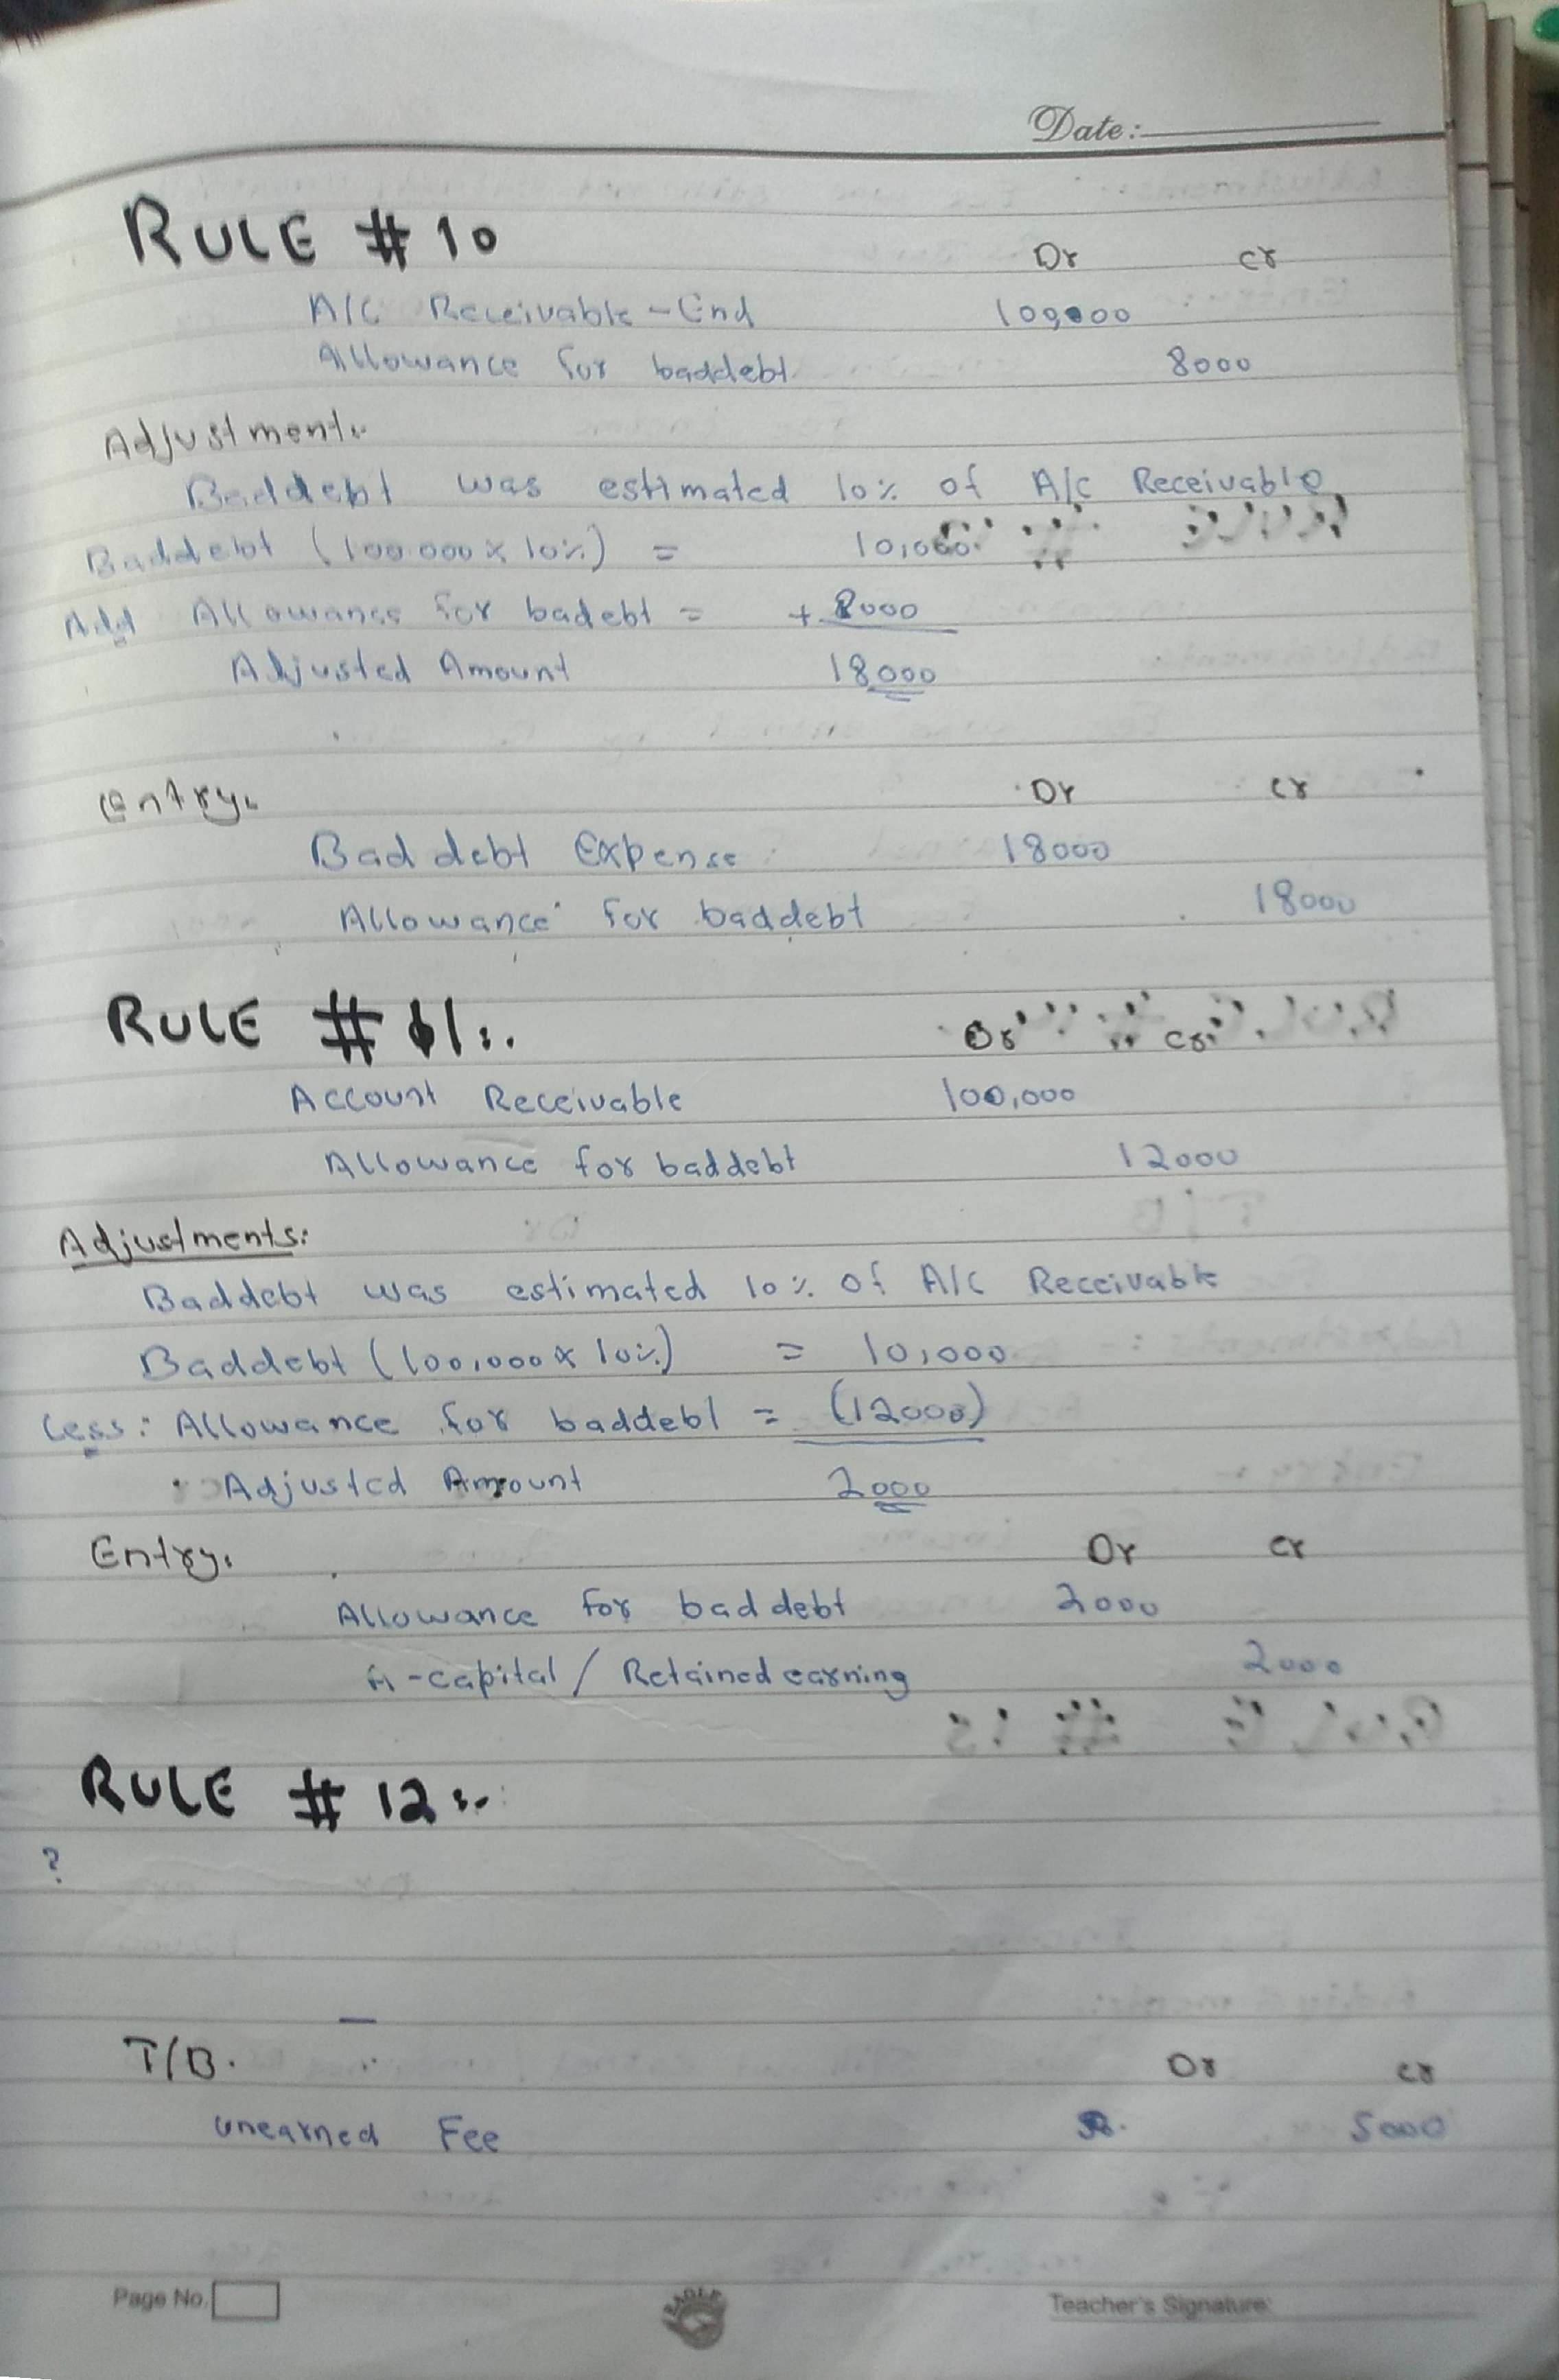 Date:
RULE # 10
Dr Cr
A/C Receivable - End 100,000
Allowance for baddebt 8000
Adjustment:
Baddebt was estimated 10% of A/C Receivable
Baddebt (100.000 x 10%) = 10,000
Add Allowance for badebt = + 8000
Adjusted Amount 18000
Entry:
Dr Cr
Bad debt Expense 18000
Allowance for baddebt 18000
RULE # 11:.
Dr Cr
Account Receivable 100,000
Allowance for baddebt 12000
Adjustments:
Baddebt was estimated 10% of A/C Receivable
Baddebt (100,000 x 10%) = 10,000
Less: Allowance for baddebt = (12000)
Adjusted Amount 2000
Entry: Dr Cr
Allowance for bad debt 2000
A-capital / Retained earning 2000
RULE # 12:-
?
T/B. Dr Cr
unearned Fee 5000
Page No.
EAGLE
Teacher's Signature: